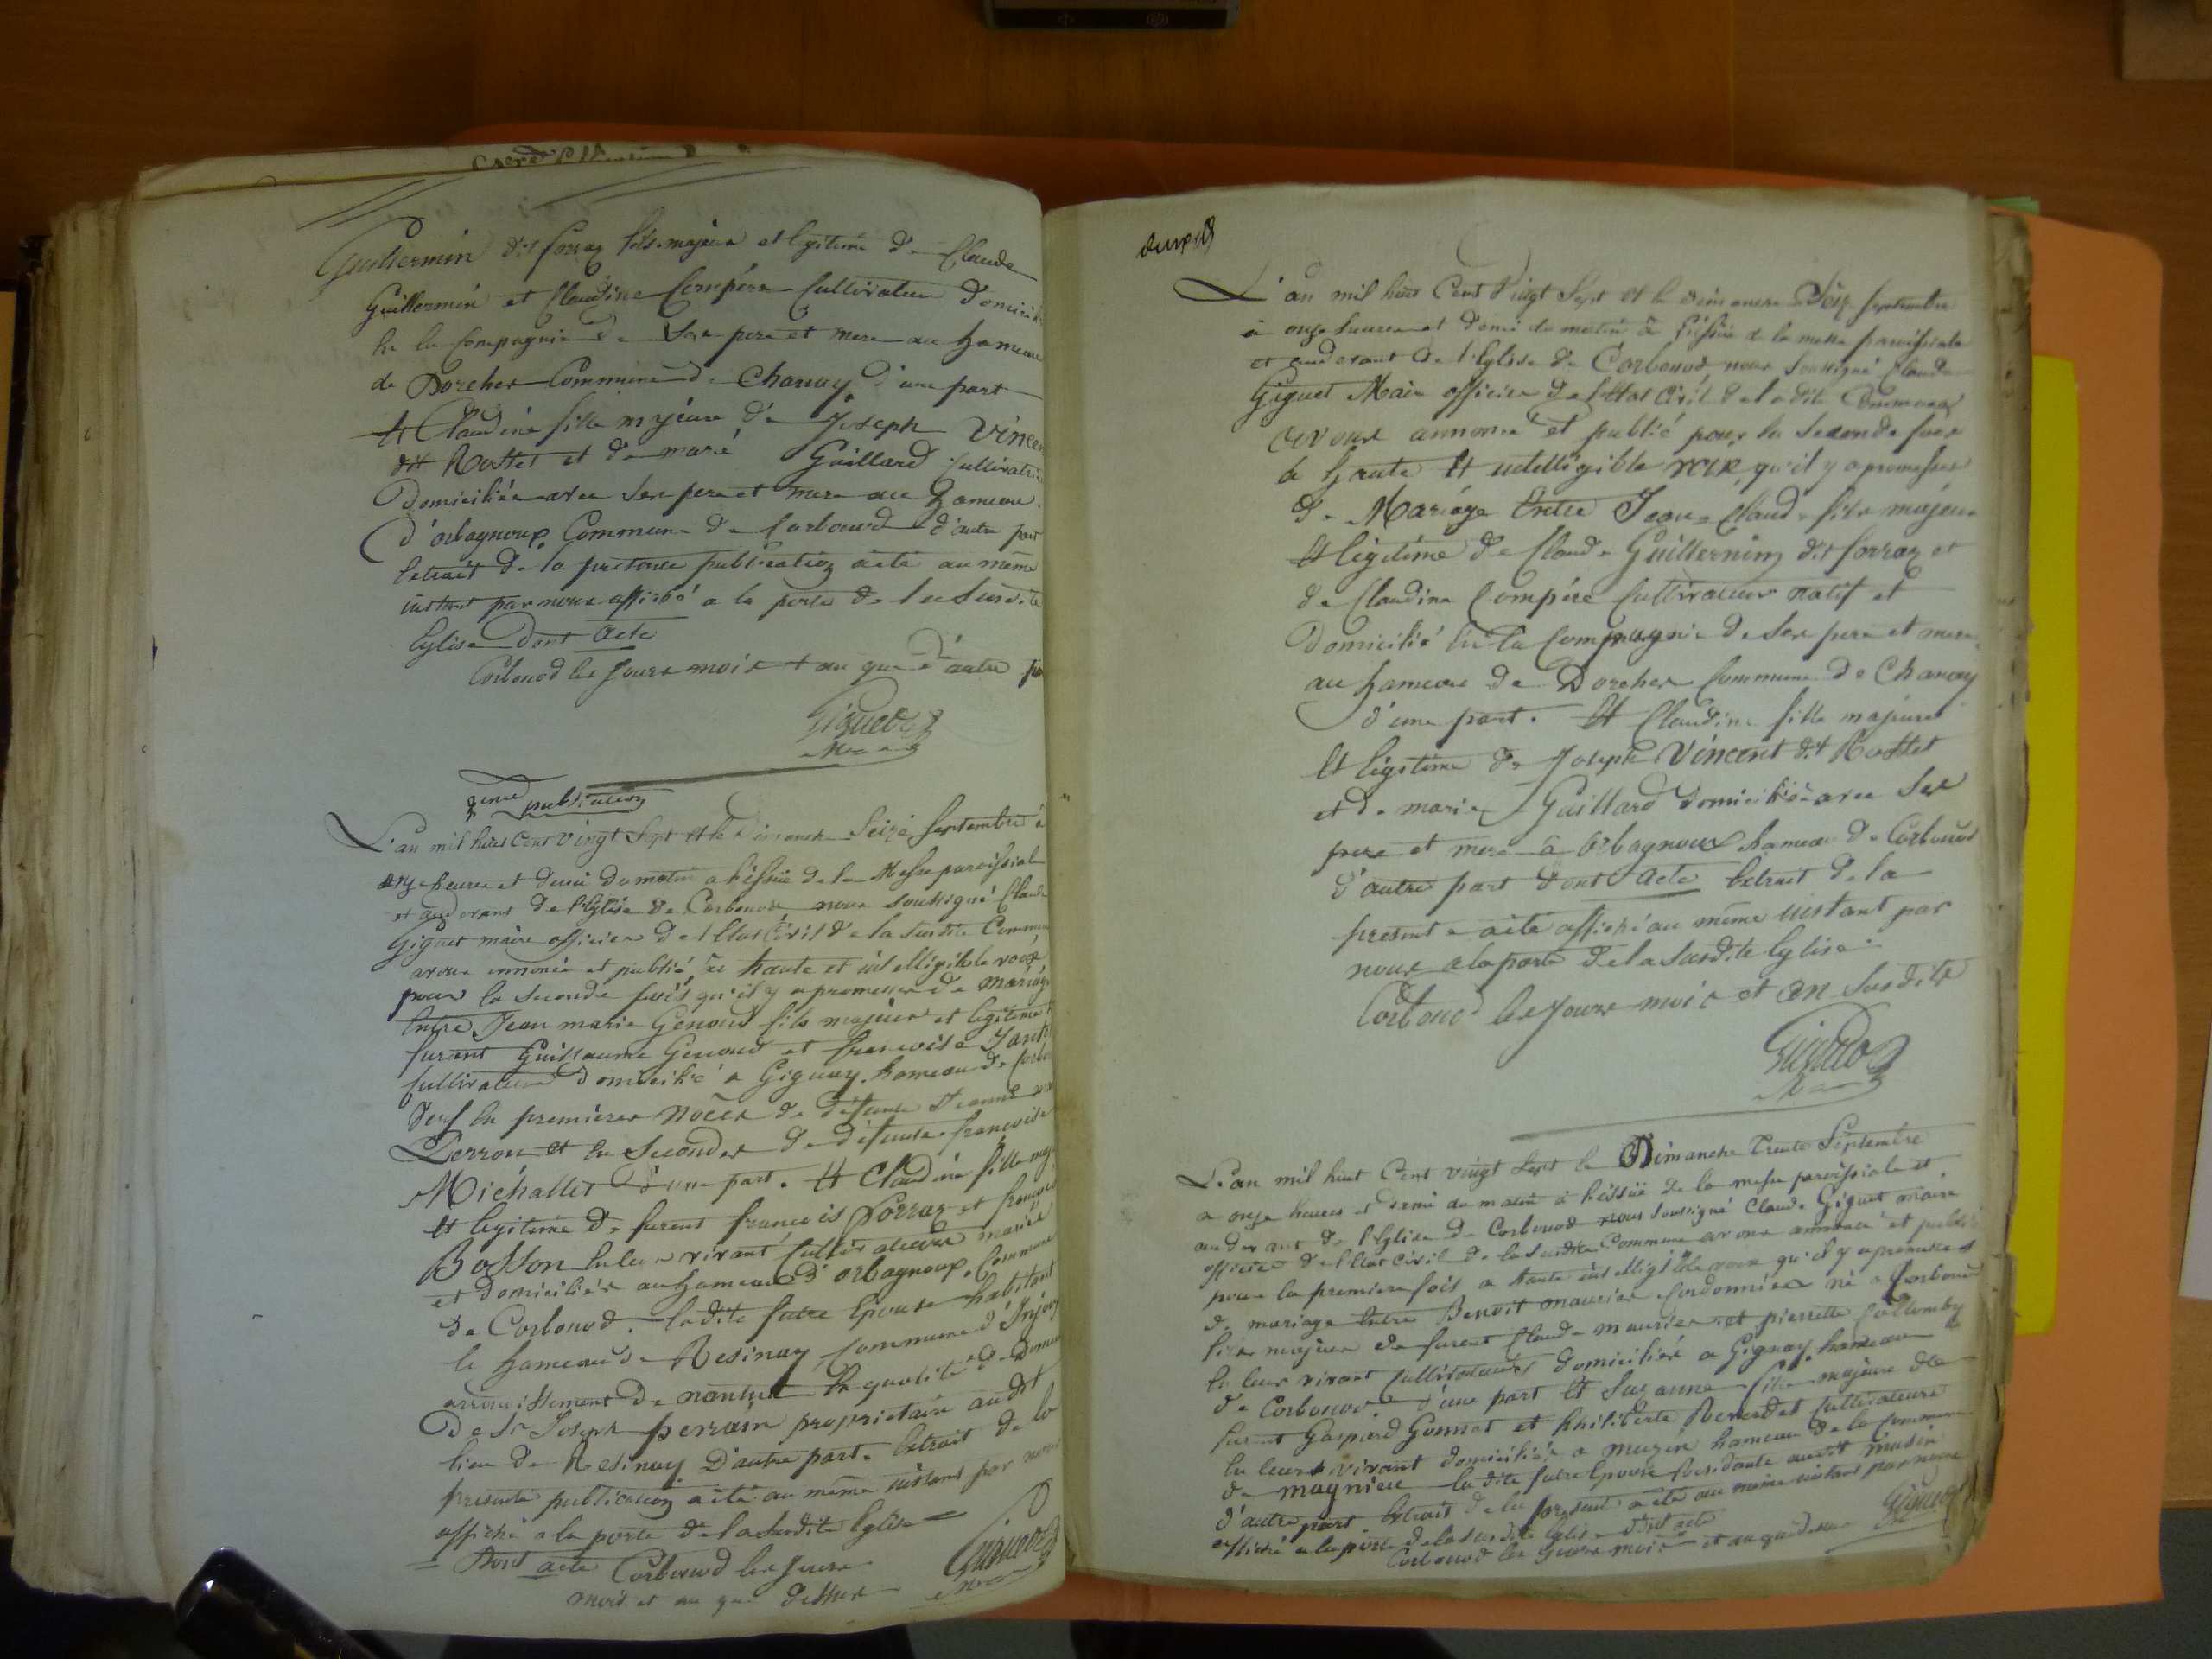 Guillermin dit forraz fils majeur et legitime de Claude
Guillermin et Claudine Compére Cultivateur domicilié
en la Compagnie de ses pere et mere au hameau
de Dorches Commune de Chanay d'une part
Et Claudine fille majeure de Joseph Vincent
dit Rosset et de marie Gaillard Cultivatrice
Domiciliée avec ses pere et mere au hameau
d'orbagnoux Commune de Corbonod d'autre part
Extrait de la presente publication a été au même
instant par nous affiché a la porte de la Susdite
Eglise Dont acte
Corbonod les jours mois et an que d'autre part
Giguet
Mre
2eme publication
L'an mil huit cent vingt Sept et le Dimanche Seize Septembre à
onze heures et demi du matin a l'issüe de la Messe paroissiale
et audevant de l'Eglise de Corbonod nous soussigné Claude
Giguet maire officier de l'Etat Civil de la susdite Commune
avons annoncé et publié, à haute et intelligible voix,
pour la seconde fois qu'il y a promesse de mariage
Entre Jean marie Genoud fils majeur et legitime
furent Guillaume Genoud et francoise
Cultivateur domicilié a Gignay hameau de
Veuf en premieres noces de defunte Jeanne
Perron et en Secondes de défunte francoise
Michallet d'une part. Et Claudine fille
et legitime de furent francois Forraz et
Bosson en leur vivant Cultivateurs mariés
et domiciliés au hameau d'orbagnoux Commune
de Corbonod. ladite future Epouse habitant
le hameau de Resinay Commune d'Injoux
arrondissement de nantua En qualité de
De Sr Joseph perrain proprietaire audit
lieu de Resinay D'autre part. Extrait de la
presente publication a été au même instant par nous
affiché a la porte de la susdite Eglise
Dont acte Corbonod les jours
mois et an que dessus
Giguet
Mre
L'an mil huit Cent Vingt Sept et le dimanche Seize Septembre
à onze heures et demi du matin à l'issüe de la messe paroissiale
et audevant de l'Eglise de Corbonod nous soussigné Claude
Giguet Maire officier de l'Etat Civil de ladite Commune
avons annoncé et publié pour la seconde fois
à haute Et intelligible voix, qu'il y a promesses
de Mariage Entre Jean Claude fils majeur
Et legitime de Claude Guillermin dit forraz et
de Claudine Compére Cultivateur natif et
Domicilié en la Compagnie de ses pere et mere
au hameau de Dorches Commune de Chanay
d'une part. Et Claudine fille majeure
Et legitime de Joseph Vincent dit Rosset
et de marie Gaillard domiciliée avec ses
pere et mere à Orbagnoux hameau de Corbonod
d'autre part dont acte Extrait de la
presente a été affiché au même instant par
nous a la porte de la susdite Eglise
Corbonod les jours mois et an susdits
Giguet
Mre
L'an mil huit Cent vingt Sept le Dimanche trente Septembre
a onze heures et demi du matin à l'issüe de la messe paroissiale et
au devant de l'Eglise de Corbonod nous soussigné Claude Giguet maire
officier de l'Etat Civil de la susdite Commune avons annoncé et publié
pour la premiere fois a haute intelligible voix qu'il y a promesse
de mariage Entre Benoit maurier Cordonnier né a Corbonod
fils majeur de furent Claude maurier et pierrette Collomby
En leur vivant Cultivateurs domiciliés a Gignay hameau
de Corbonod d'une part Et Suzanne fille majeure de
furent Gaspard Gonnet et philiberte Cultivateurs
En leurs vivant domiciliés a muzin hameau de la Commune
de magnieu ladite future Epouse Residante audit musin
d'autre part Extrait de la present a été au même instant par nous
affiché a la porte de la susdite Eglise dont acte
Corbonod les jours mois et an que dessus
Giguet